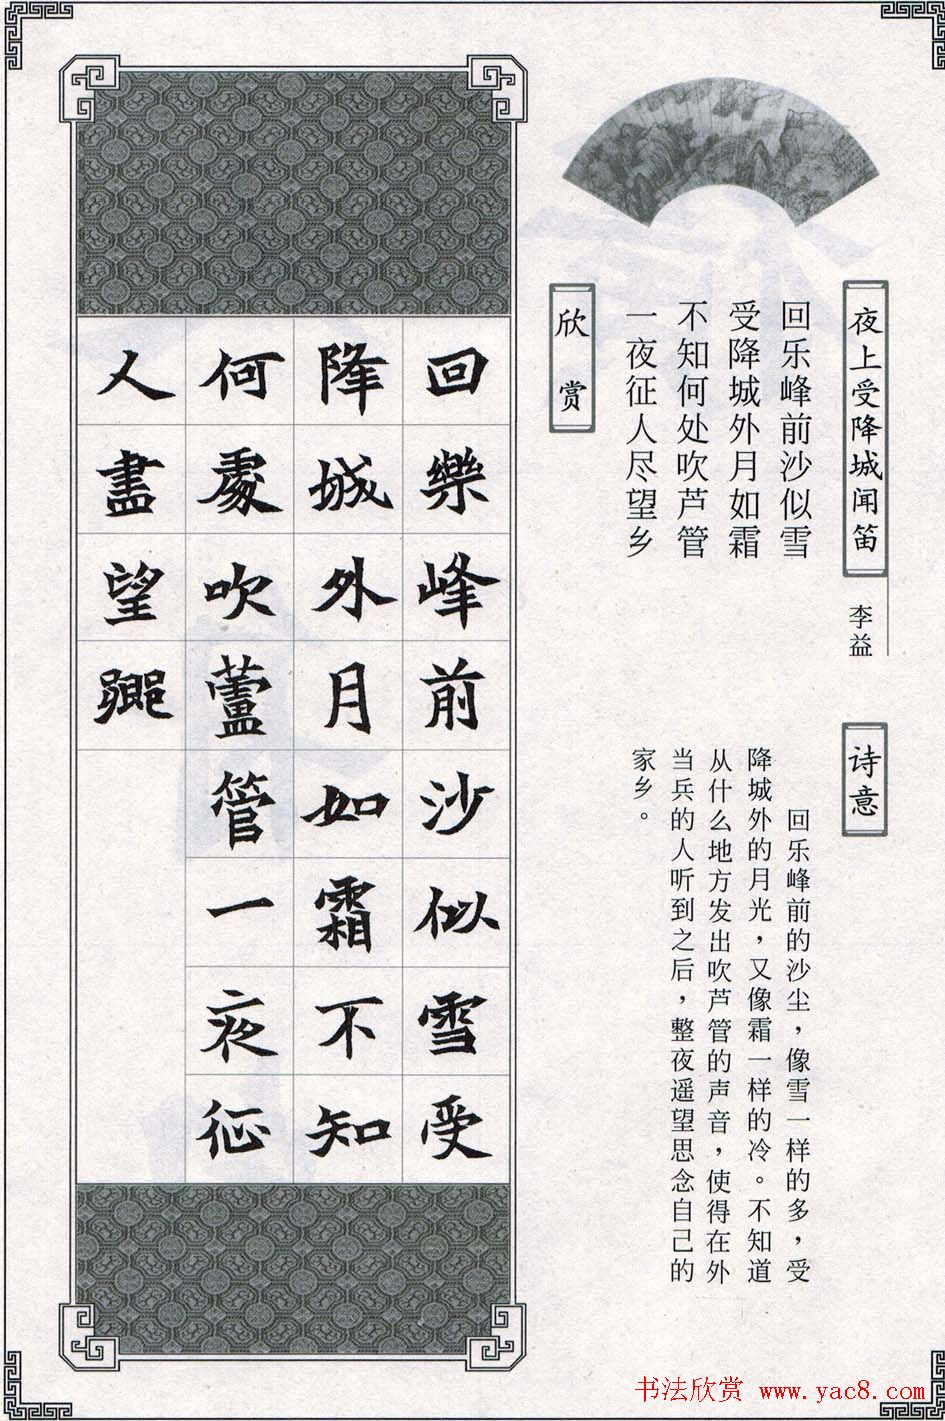 夜上受降城闻笛
李益
回乐峰前沙似雪
受降城外月如霜
不知何处吹芦管
一夜征人尽望乡
诗意
回乐峰前的沙尘，像雪一样的多，受
降城外的月光，又像霜一样的冷。不知道
从什么地方发出吹芦管的声音，使得在外
当兵的人听到之后，整夜遥望思念自己的
家乡。
欣赏
回樂峰前沙似雪受
降城外月如霜不知
何處吹蘆管一夜征
人盡望鄉
书法欣赏 www.yac8.com